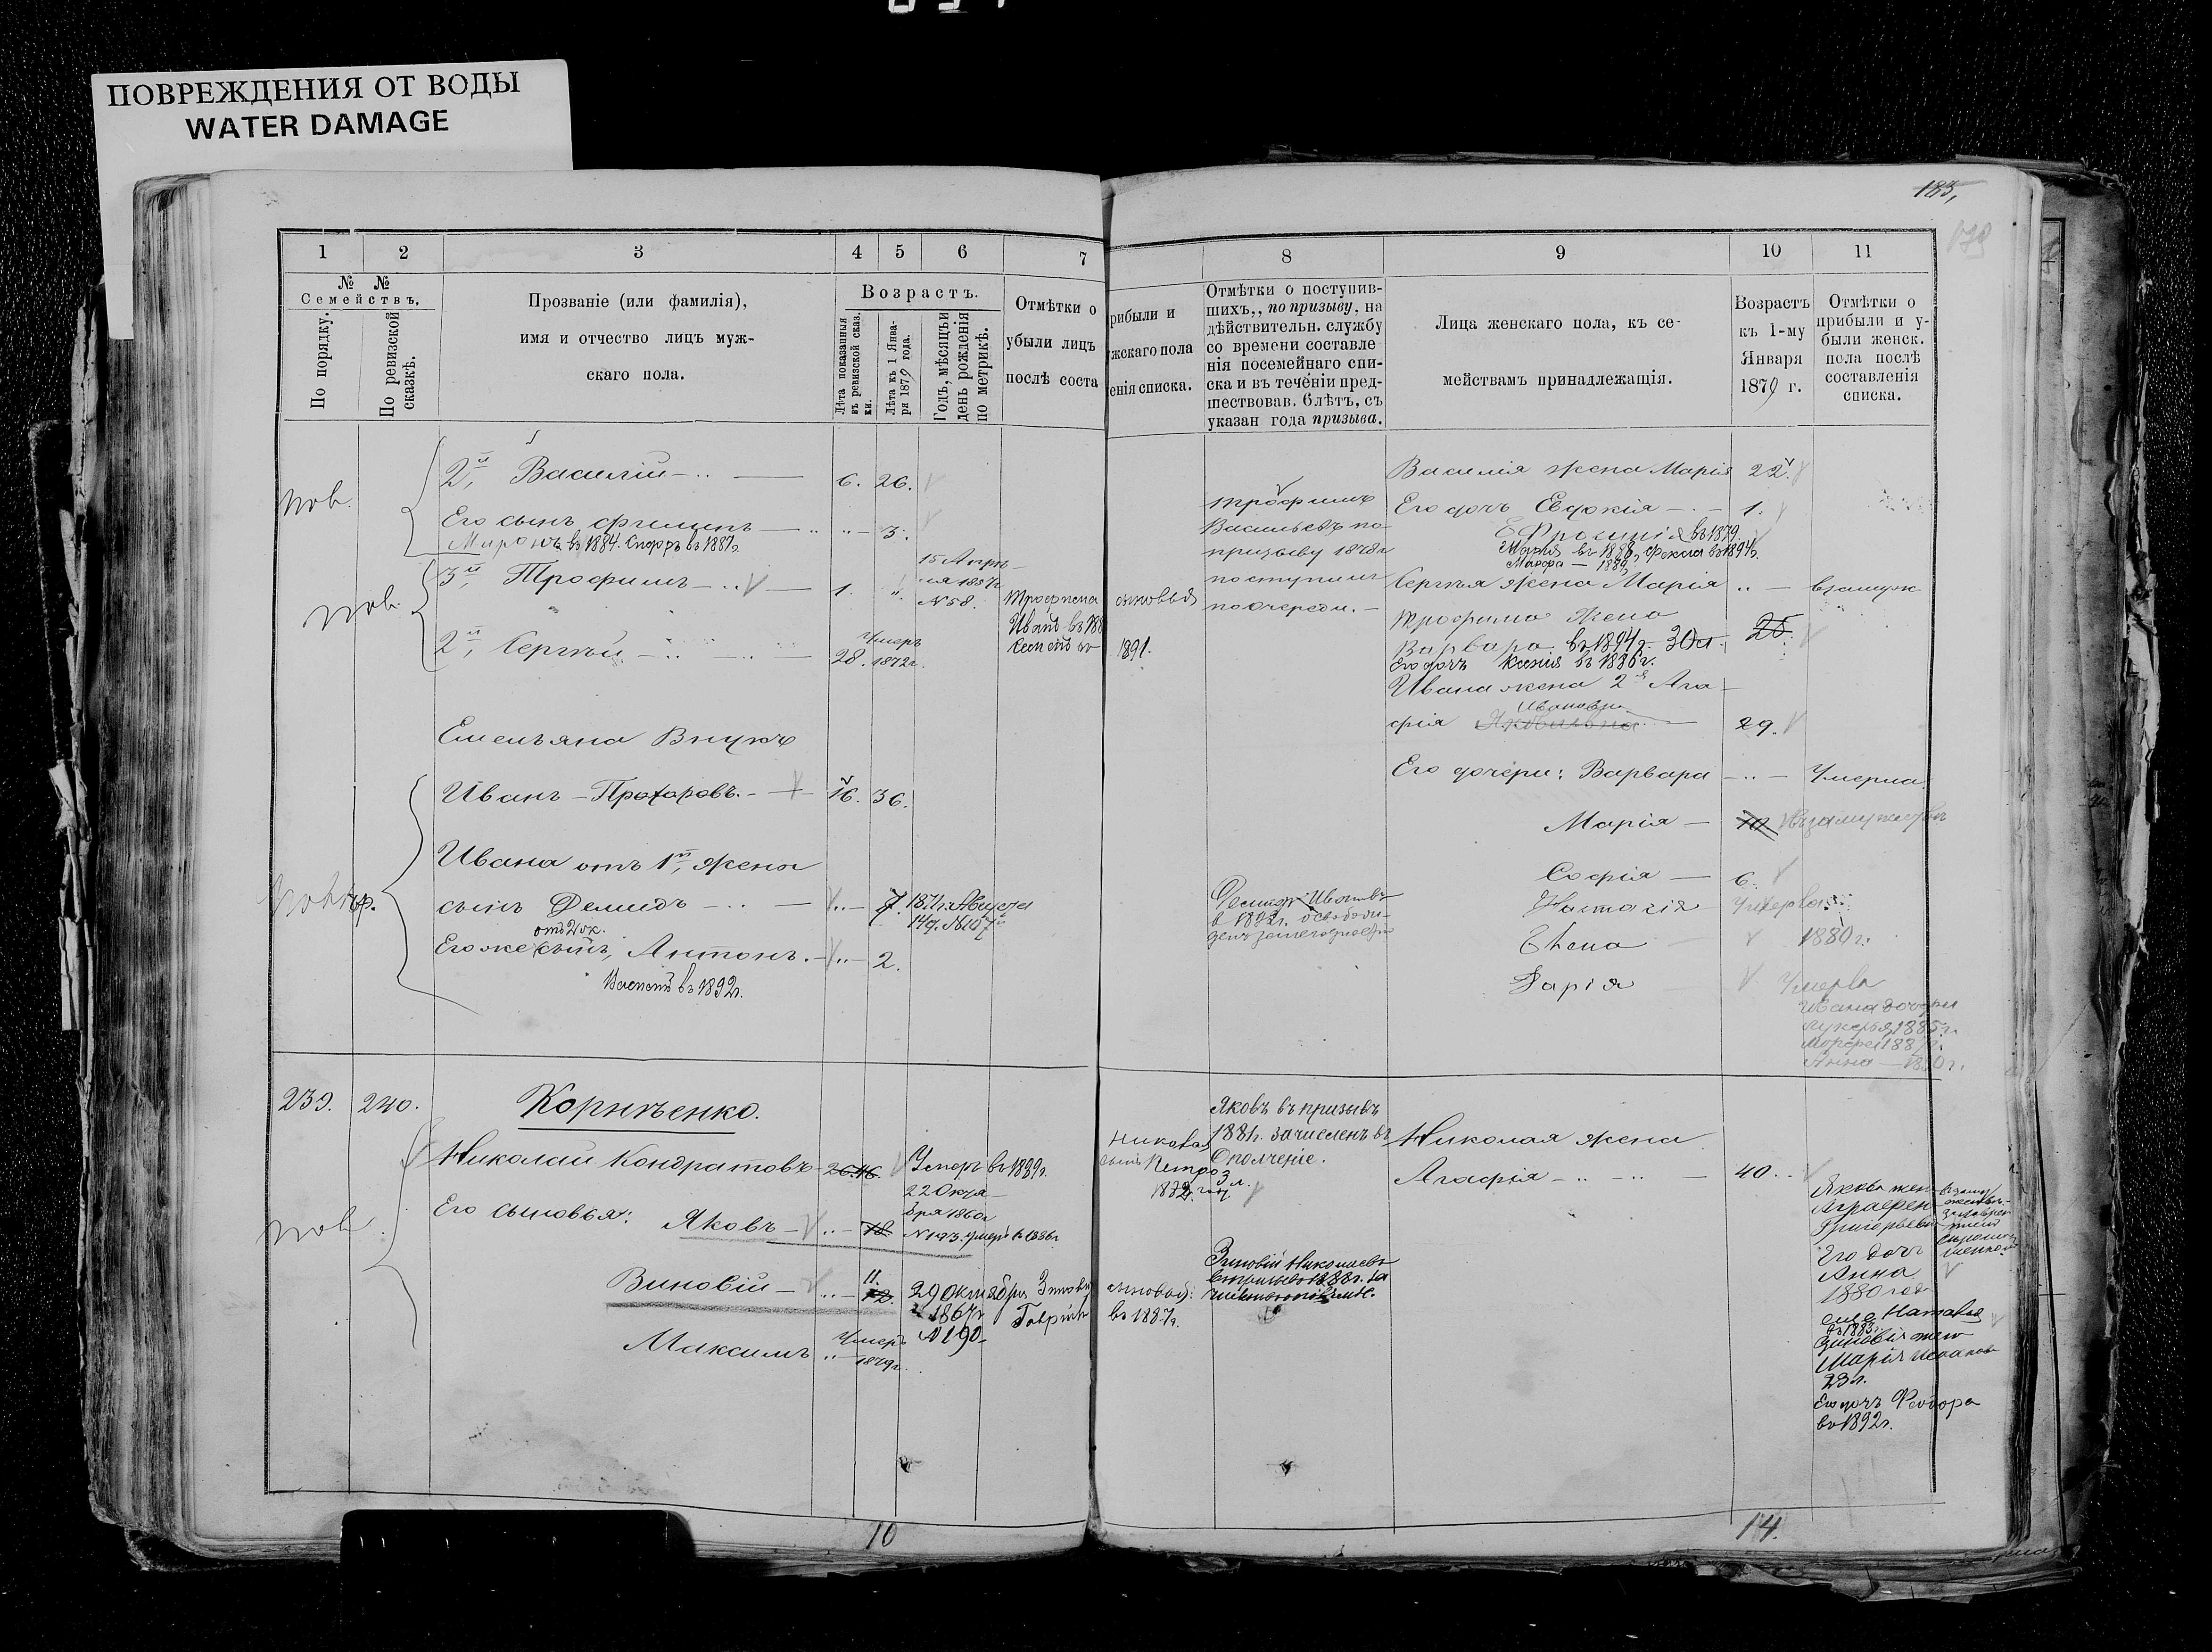 ПОВРЕЖДЕНИЯ ОТ ВОДЫ
WATER DAMAGE
183,
179
1 2 3 4 5 6 7
№ № Семействъ.
По порядку.
По ревизской сказкѣ.
Прозваніе (или фамилія),
имя и отчество лицъ муж-
скаго пола.
Возрастъ.
Лѣта показанныя въ ревизской сказ.ки.
Лѣта къ 1 Янва-ря 1879 года.
Годъ, мѣсяцъ и день рожденія по метрикѣ.
Отмѣтки о
убыли лицъ
послѣ соста
2й, Василій 6. 26.
Его сынъ Филипъ 3.
Миронъ въ 1884. Сидоръ въ 1887г.
3й, Трофимъ 1.
15 Апрѣ-
ля 1857г.
№ 58.
Трофима
Иванъ въ 188
2й, Сергѣй 28. Умеръ 1872г.
Емельяна Внукъ
Иванъ Прохоровъ. 16. 36.
Ивана отъ 1й, жены
сынъ Демидъ 7. 1871г. Августа
14д. №107
отъ 2 ж.
Его же сынъ, Антонъ. 2.
въ 1892г.
239. 240. Корнѣенко.
Николай Кондратовъ 26. 46. Умеръ въ 1889г.
Его сыновья: Яковъ 18
22 Октя-
бря 1860г
№ 193. умеръ въ 1886г
Зиновій 11. 12. 29 октября Зиновія
1867г Гаврiилъ
№ 190
Максимъ Умеръ 1879г.
10
8 9 10 11
рибыли и
жскаго пола
енія списка.
Отмѣтки о поступив-
шихъ,, по призыву, на
дѣйствительн. службу
со времени составле
нія посемейнаго спи-
ска и въ теченіи пред-
шествовав. 6 лѣтъ, съ
указан года призыва.
Лица женскаго пола, къ се-
мействамъ принадлежащія.
Возрастъ
къ 1-му
Января
1879 г.
Отмѣтки о
прибыли и у-
были женск.
пола послѣ
составленія
списка.
Василія жена Марія 22.
Трофимъ
Васильевъ по
призыву 1878г
поступилъ
по очереди.
сыновья
1891.
Его дочь Евдокія 1.
Ефросинія въ 1879.
Марія въ 1888, Фекла въ 1894г.
Марфа — 1889
Сергѣя жена Марія взамуж
Трофима жена
Варвара въ 1894г. 30л. 25.
Его дочь Ксенія въ 1886г.
Ивана жена 2я Ага-
Ивановна
фія Яковлевна 29.
Его дочери: Варвара Умерла.
Марія 10 въ замужествѣ
Софія 6.
Наталія Умерла
Елена 1880г.
Дарія Умерла
Ивана дочери
Лукерья 1885г.
Анна
Ивановъ
в 1892г. освобож-
Николая
сынъ Петръ 3 л.
Яковъ въ призывъ
1881г. зачисленъ въ
Ополченіе.
Николая жена
Агафія 40.
Якова жен
Аграфен
Григорьев
Его дочь
Анна
1880 год
еще Наталья
въ 1883г.
Зиновія жена
Марія
23л.
Его дочь Феодора
въ 1892г.
Зиновій Николаевъ
въ призывъ 1888г. за
сыновья:
въ 1887г.
14.